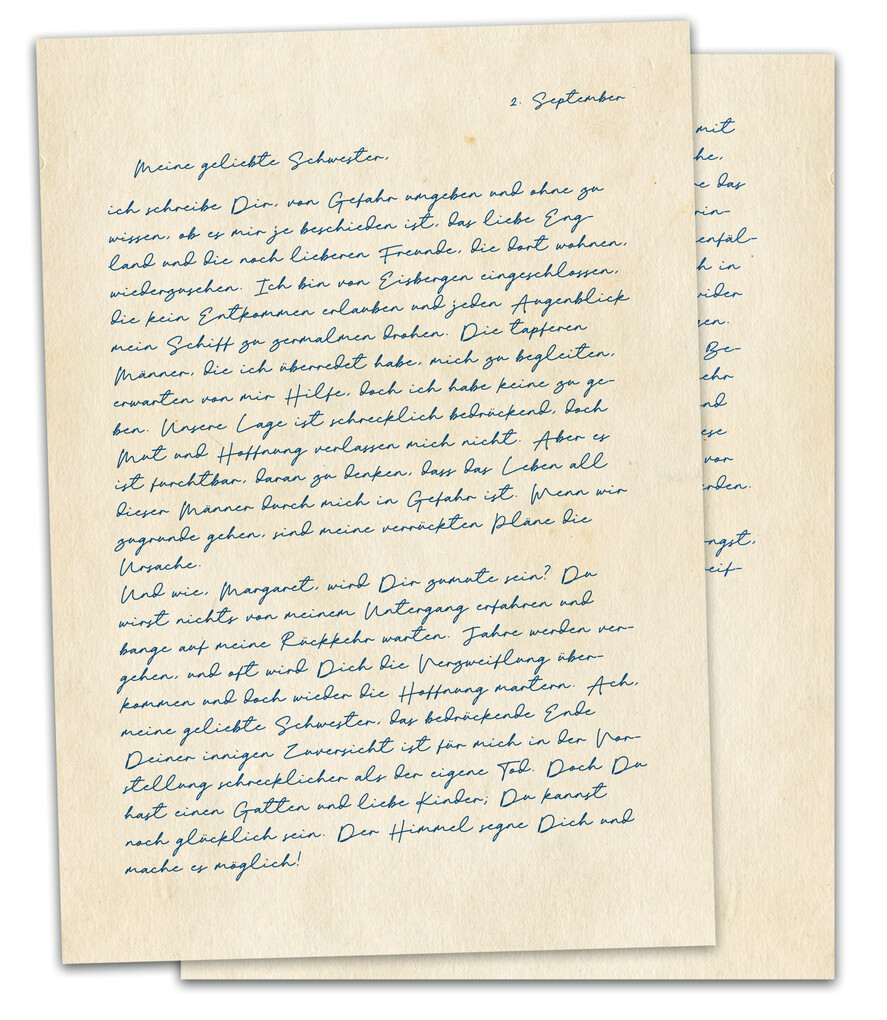 2. September
Meine geliebte Schwester,
ich schreibe Dir, von Gefahr umgeben und ohne zu
wissen, ob es mir je beschieden ist, das liebe Eng-
land und die noch lieberen Freunde, die dort wohnen,
wiederzusehen. Ich bin von Eisbergen eingeschlossen,
die kein Entkommen erlauben und jeden Augenblick
mein Schiff zu zermalmen drohen. Die tapferen
Männer, die ich überredet habe, mich zu begleiten,
erwarten von mir Hilfe, doch ich habe keine zu ge-
ben. Unsere Lage ist schrecklich bedrückend, doch
Mut und Hoffnung verlassen mich nicht. Aber es
ist furchtbar, daran zu denken, dass das Leben all
dieser Männer durch mich in Gefahr ist. Wenn wir
zugrunde gehen, sind meine verrückten Pläne die
Ursache.
Und wie, Margaret, wird Dir zumute sein? Du
wirst nichts von meinem Untergang erfahren und
bange auf meine Rückkehr warten. Jahre werden ver-
gehen, und oft wird Dich die Verzweiflung über-
kommen und doch wieder die Hoffnung martern. Ach,
meine geliebte Schwester, das bedrückende Ende
Deiner innigen Zuversicht ist für mich in der Vor-
stellung schrecklicher als der eigene Tod. Doch Du
hast einen Gatten und liebe Kinder; Du kannst
noch glücklich sein. Der Himmel segne Dich und
mache es möglich!
mit
he,
e das
rin-
enfäl-
h in
vider
gen.
Be-
ehr
nd
ese
vor
rden.
ngst,
eif-